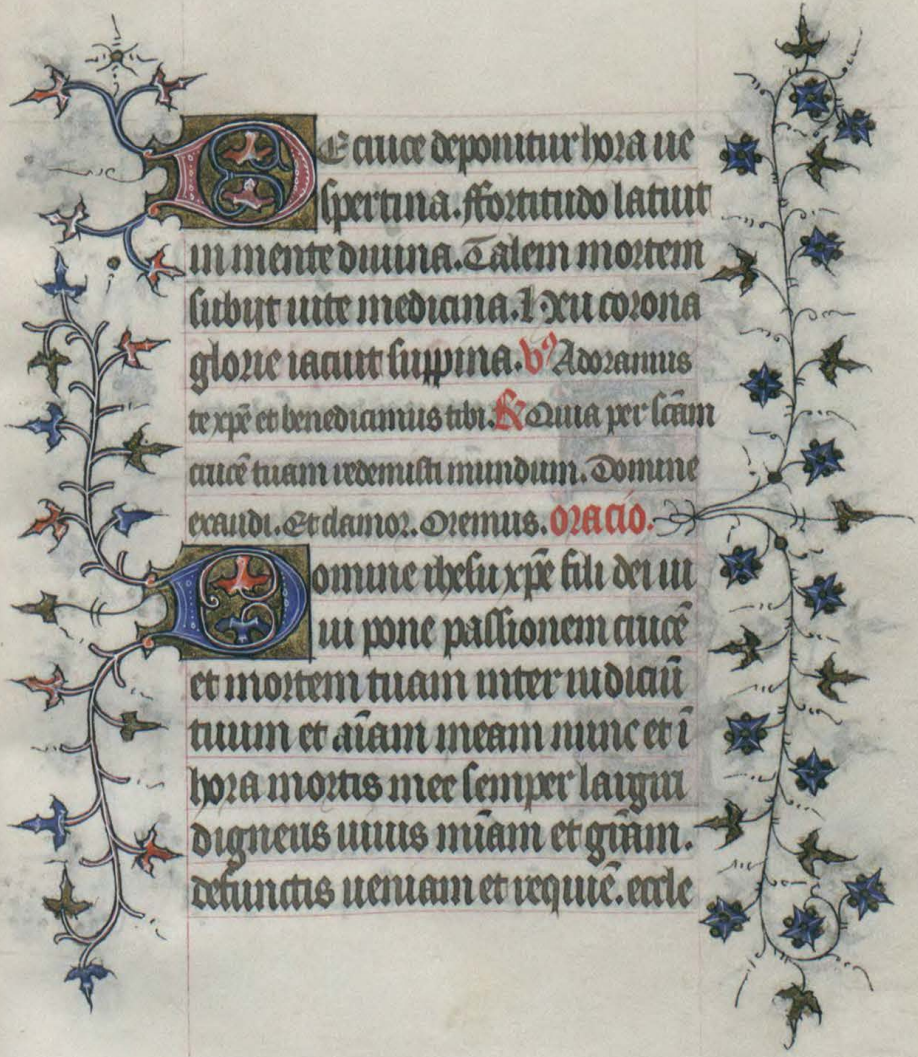 De cruce deponitur hora ue
spertina. ffortitudo latuit
in mente diuina. Talem mortem
subijt uite medicina. corona
glorie iacuit suppina. Adoramus
te xp̄e et benedicimus tibi. ℟ Quia per sc̄am
crucē tuam redemisti mundum. Domine
exaudi. Et clamor. Oremus. oracio.
Domine ihesu xp̄e fili dei ui
ui pone passionem crucē
et mortem tuam inter iudiciū
tuum et aīam meam nunc et ī
hora mortis mee semper largiri
digneris uiuis mīam et gr̄am.
defunctis ueniam et requiē. eccle